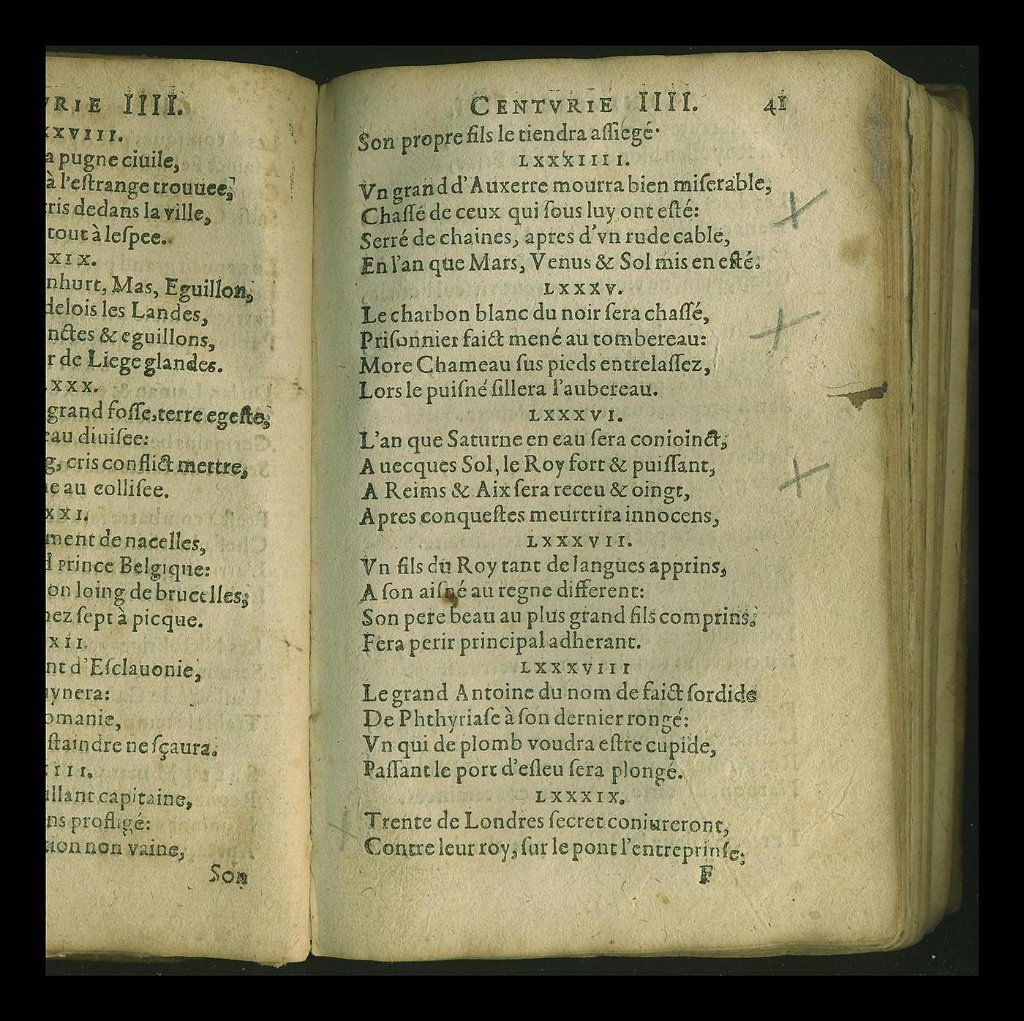 IIII.
pugne ciuile,
à l'eſtrange trouuee,
dedans la ville,
tout à leſpee.
Mas, Eguillon,
les Landes,
& eguillons,
de Liege glandes.
grand foſſe.terre egeſte,
diuiſee:
cris conflict mettre,
au colliſee.
de nacelles,
prince Belgique:
loing de brucelles,
ſept à picque.
d'Eſclauonie,
ne ſçaura.
capitaine,
profligé:
non vaine,
Son
CENTVRIE IIII. 41
Son propre fils le tiendra aſſiegé.
LXXXIIII.
Vn grand d'Auxerre mourra bien miſerable,
Chaſſé de ceux qui ſous luy ont eſté:
Serré de chaines, apres d'vn rude cable,
En l'an que Mars, Venus & Sol mis en eſté.
LXXXV.
Le charbon blanc du noir ſera chaſſé,
Priſonnier faict mené au tombereau:
More Chameau ſus pieds entrelaſſez,
Lors le puiſné ſillera l'aubereau.
LXXXVI.
L'an que Saturne en eau ſera conioinct,
Auecques Sol, le Roy fort & puiſſant,
A Reims & Aix ſera receu & oingt,
Apres conqueſtes meurtrira innocens,
LXXXVII.
Vn fils du Roy tant de langues apprins,
A ſon aiſné au regne different:
Son pere beau au plus grand fils comprins,
Fera perir principal adherant.
LXXXVIII
Le grand Antoine du nom de faict ſordide
De Phthyriaſe à ſon dernier rongé:
Vn qui de plomb voudra eſtre cupide,
Paſſant le port d'eſleu ſera plongé.
LXXXIX.
Trente de Londres ſecret coniureront,
Contre leur roy, ſur le pont l'entreprinſe,
F